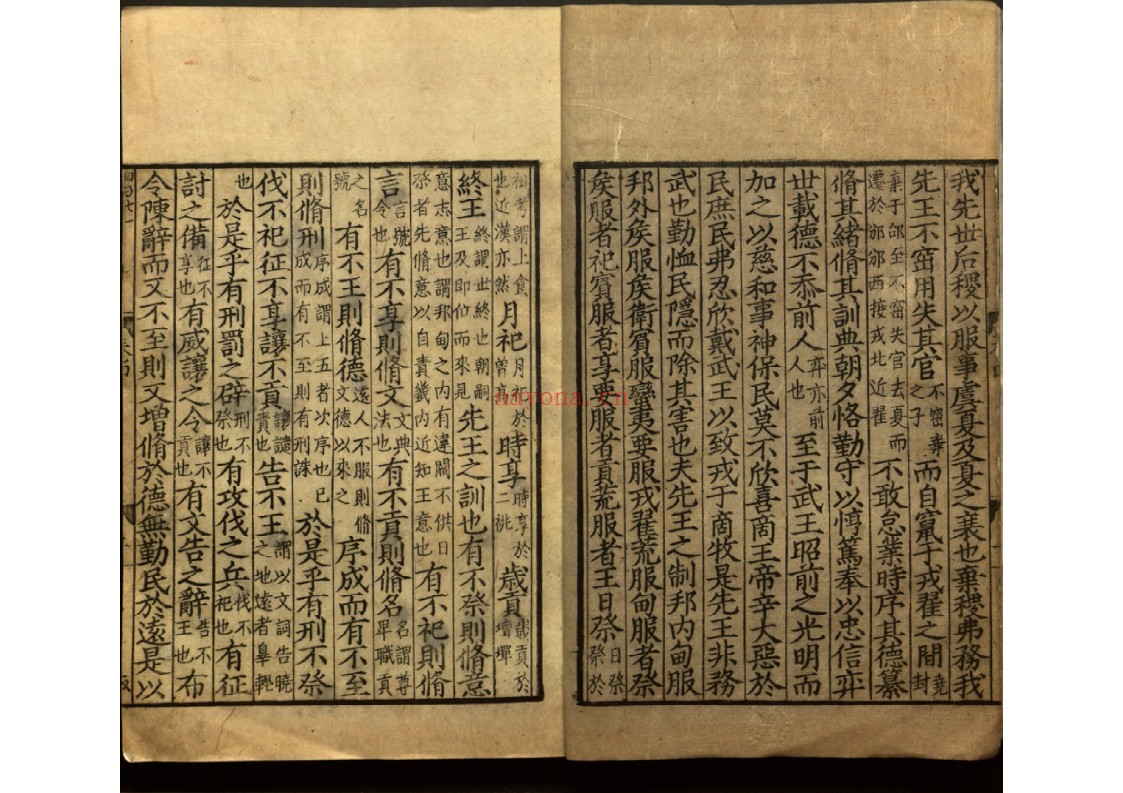 我先世后稷以服事虞夏及夏之衰也棄稷弗務我
先王不窋用失其官不窋棄之子而自竄于戎翟之間堯封
棄于邰至不窋失官去夏而遷於邠邠西接戎北近翟不敢怠業時序其德纂
脩其緒脩其訓典朝夕恪勤守以惇篤奉以忠信弈
世載德不忝前人弈亦前人也至于武王昭前之光明而
加之以慈和事神保民莫不欣喜商王帝辛大惡於
民庶民弗忍欣戴武王以致戎于商牧是先王非務
武也勤恤民隱而除其害也夫先王之制邦内甸服
邦外侯服侯衛賓服蠻夷要服戎翟荒服甸服者祭
侯服者祀賓服者享要服者貢荒服者王日祭日祭祭於
祖考謂上食也近漢亦然月祀月祀於曾高時享時享於二祧歲貢歲貢於壇墠
終王終謂世終也朝嗣王及即位而來見先王之訓也有不祭則脩意
意志意也謂邦甸之内有違闕不供日祭者先脩意以自責畿内近知王意也有不祀則脩
言言號令也有不享則脩文文典法也有不貢則脩名名謂尊卑職貢
之名號有不王則脩德遠人不服則脩文德以來之序成而有不至
則脩刑序成謂上五者次序也已成而有不至則有刑誅於是乎有刑不祭
伐不祀征不享讓不貢讓譴責也告不王謂以文詞告曉之地遠者辠輕
也於是乎有刑罰之辟刑不祭也有攻伐之兵伐不祀也有征
討之備征不享也有威讓之令讓不貢也有文告之辭告不王也布
令陳辭而又不至則又增脩於德無勤民於遠是以
nayona.cn